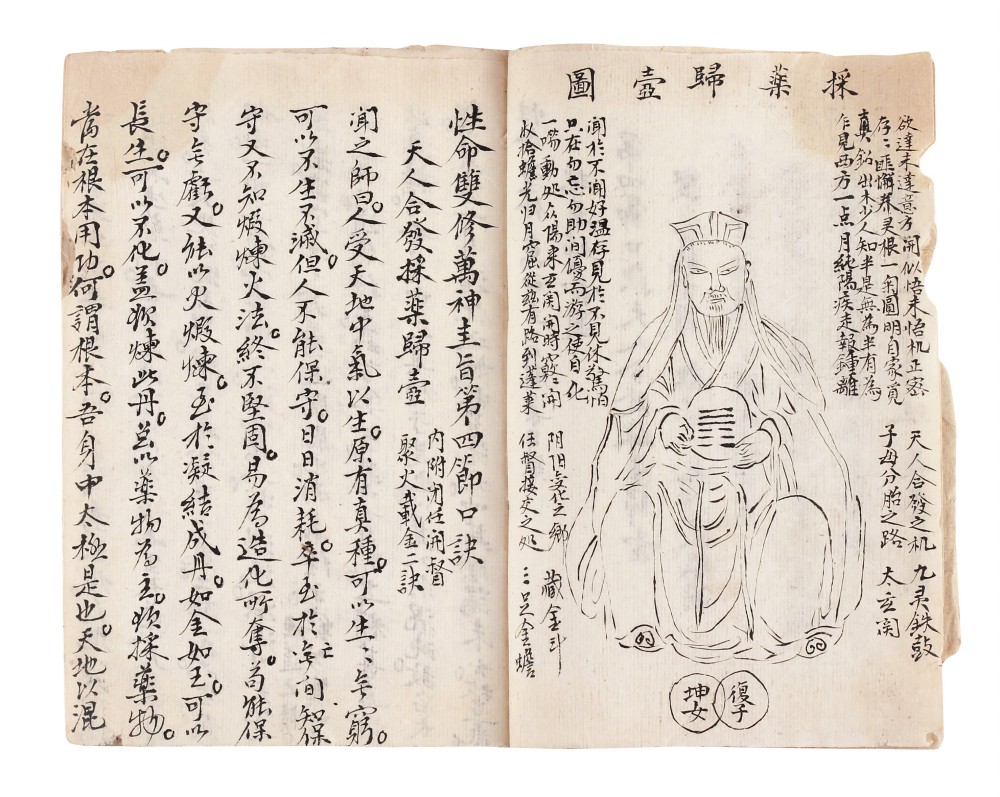 採藥歸壺圖
欲達未達意方開似悟未悟机正密
存存匪懈养灵根一刹圓明自家覓
真鉛出未少人知半是無為半有為
乍見西方一点月純陽疾走報鍾離
天人合發之机
子母分胎之路
九灵鉄鼓
太玄関
聞於不聞好温存見於不見休驚怕
只在勿忘勿助间優而游之使自化
一陽動処众陽来玄関開時竅竅開
收拾蟾光归月窟從玆有路到蓬莱
阴阳変化之鄉
任督接交之处
藏金斗
三足金蟾
復子
坤女
性命雙修萬神圭旨第四節口訣
天人合發採藥歸壺
内附闭任開督
聚火載金二訣
闻之師曰人受天地中氣以生原有真種可以生生無窮
可以不生不滅但人不能保守日日消耗卒至於亡间知保
守又不知煆煉火法終不堅固易為造化所奪苟能保
守無虧又能以火煆煉至於凝結成丹如金如玉可以
長生可以不化盖欲煉此丹以藥物為主欲採藥物
當在根本用功何謂根本吾身中太極是也天地以混